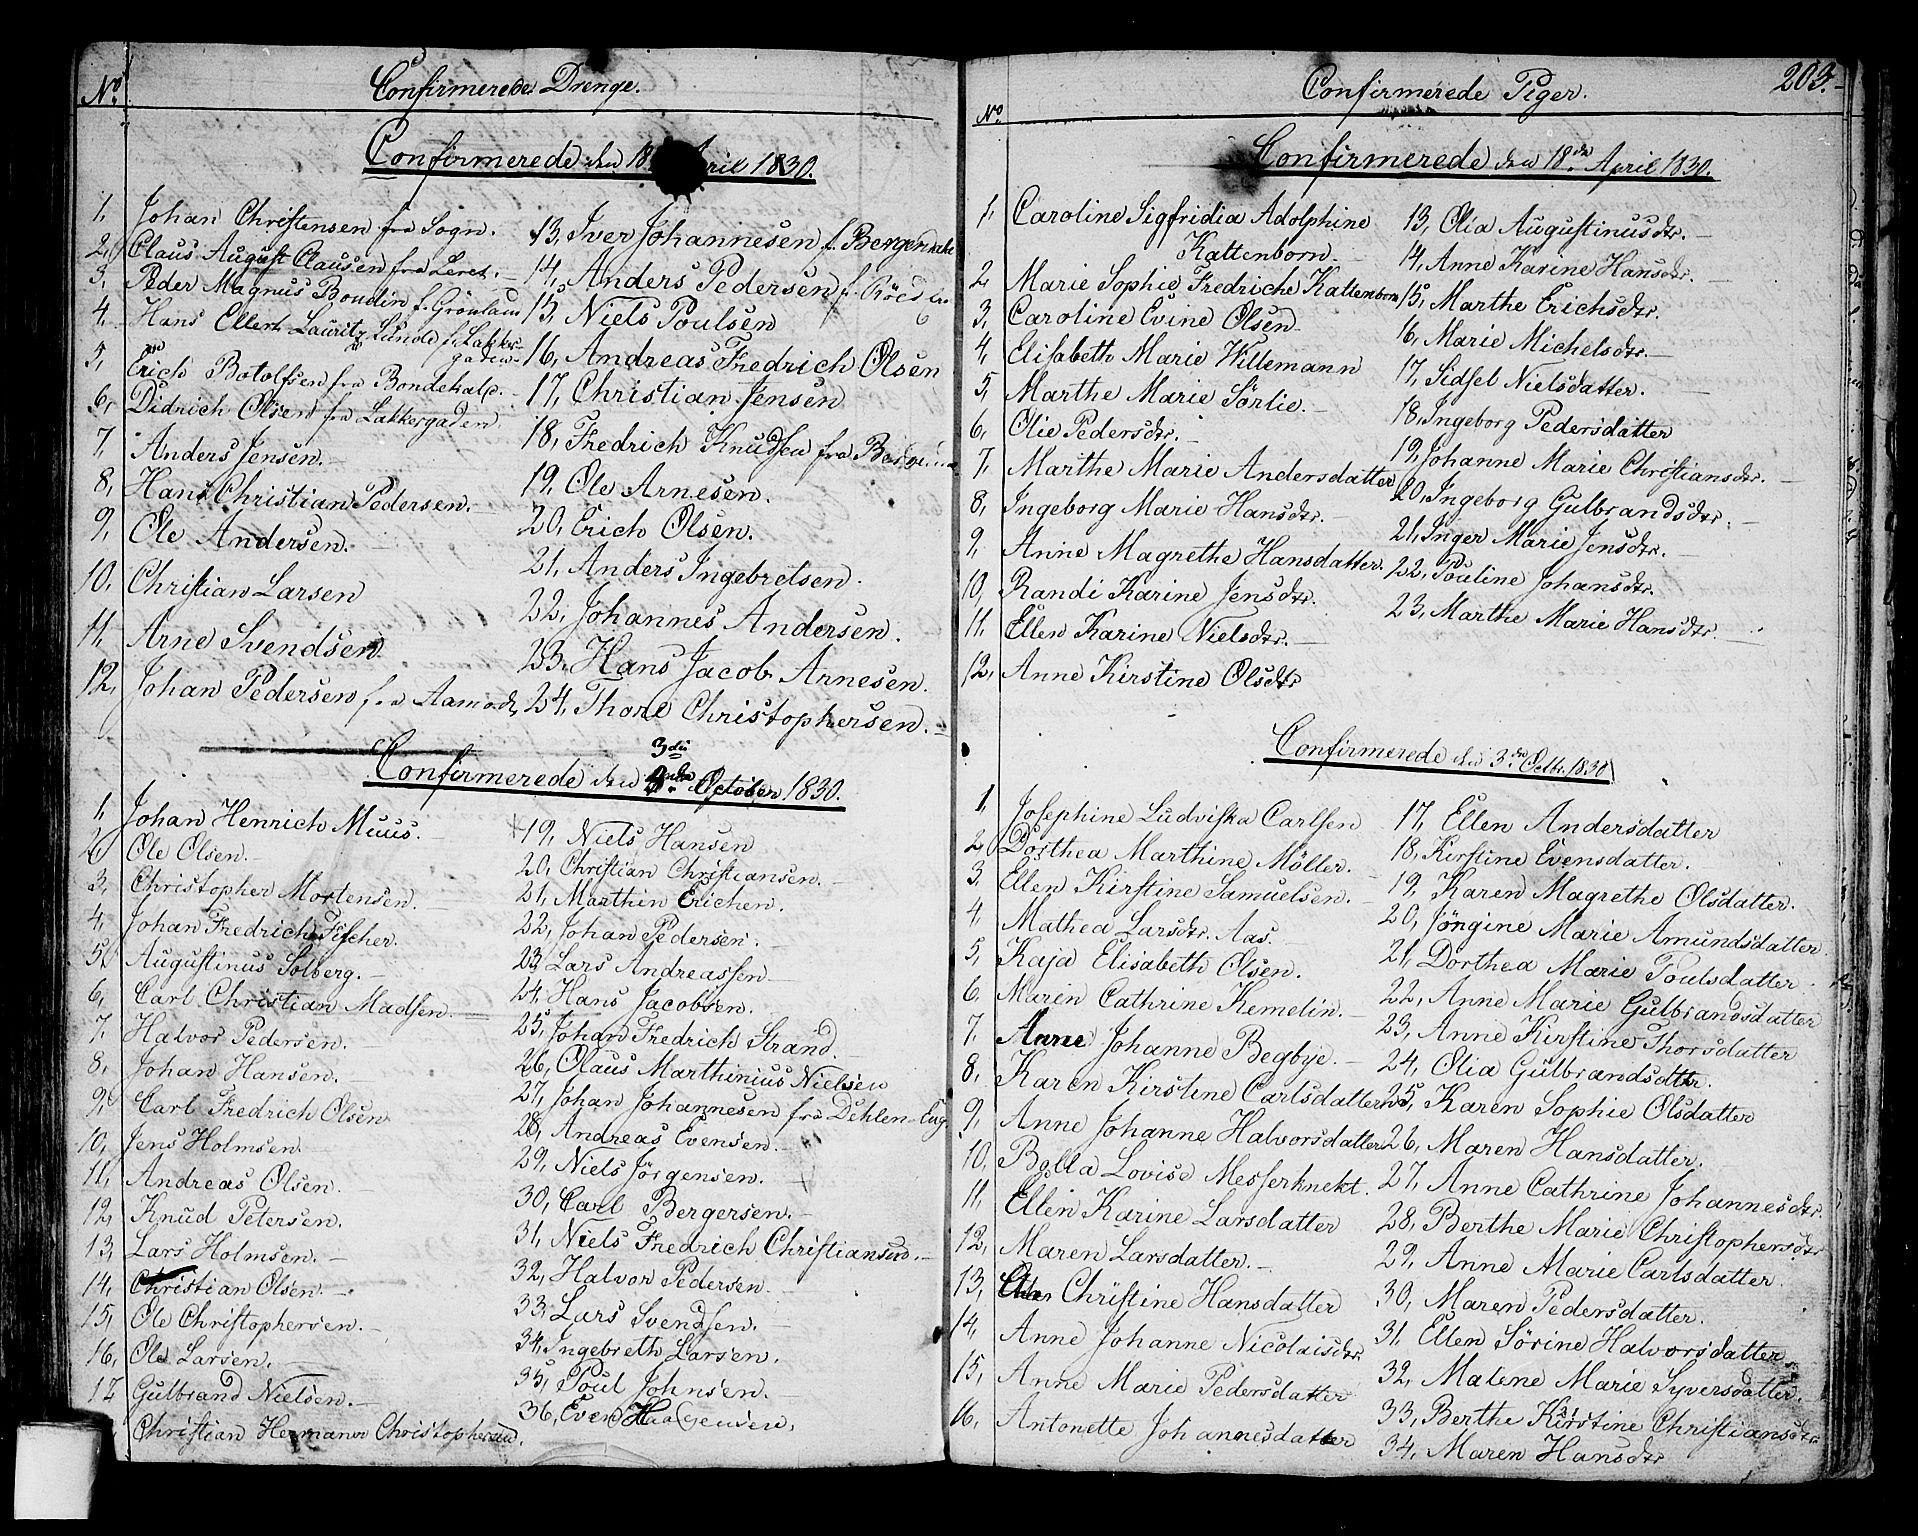 No.
Confirmerede Drenge.
Confirmerede den 18 April 1830.
1, Johan Christensen fra Sogn.
2, Claus August Clausen fra Leret.
3, Peder Magnus Boudin f. Grönland
4, Hans Ellert Lauritz Lunde f. Lakker-
gaden
5, Erich Botolfsen fra Bondehale.
6, Didrich Olsen fra Lakkergaden.
7, Anders Jensen.
8, Hans Christian Pedersen.
9, Ole Andersen.
10, Christian Larsen
11, Arne Svendsen
12, Johan Pedersen fra Aamodt
13, Iver Johannesen f.
14, Anders Pedersen f.
15, Niels Poulsen
16, Andreas Fredrich Olsen
17, Christian Jensen
18, Fredrich Knudsen fra
19, Ole Arnesen.
20, Erich Olsen.
21, Anders Ingebretsen.
22, Johannes Andersen.
23, Hans Jacob Arnesen.
24, Thore Christophersen.
Confirmerede den 3die October 1830.
1, Johan Henrich Muus.
2, Ole Olsen.
3, Christopher Mortensen.
4, Johan Fredrich Fischer.
5, Augustinus Solberg.
6, Carl Christian Madsen.
7, Halvor Pedersen.
8, Johan Hansen.
9, Carl Fredrich Olsen
10, Jens Holmsen.
11, Andreas Olsen.
12, Knud Petersen.
13, Lars Holmsen.
14, Christian Olsen.
15, Ole Christophersen.
16, Ole Larsen.
17, Gulbrand Nielsen.
Christian Herman Christophersen.
19, Niels Hansen
20, Christian Christiansen.
21, Marthin Erichen.
22, Johan Pedersen.
23, Lars Andreassen
24, Hans Jacobsen.
25, Johan Fredrich Strand.
26, Olaus Marthinius Nielsen
27, Johan Johannesen fra Dehlen-Eng
28, Andreas Evensen.
29, Niels Jörgensen.
30, Carl Bergersen.
31, Niels Fredrich Christiansen.
32, Halvor Pedersen
33, Lars Svendsen.
34, Ingebreth Larsen.
35, Poul Johnsen.
36, Even Haagensen,
No.
Confirmerede Piger.
203.
Confirmerede den 18de April 1830.
1, Caroline Sigfridia Adolphine
Kattenborn.
2, Marie Sophie Fredriche Kattenborn
3, Caroline Evine Olsen
4, Elisabeth Marie Willemann
5, Marthe Marie Sörlie.
6, Olie Pedersdtr.
7, Marthe Marie Andersdatter
8, Ingeborg Marie Hansdtr.
9, Anne Magrethe Hansdatter.
10, Randi Karine Jensdtr.
11, Ellen Karine Nielsdtr.
12, Anne Kirstine Olsdtr
13, Olia Augustinusdtr.
14, Anne Karine Hansdtr.
15, Marthe Erichsdtr.
16, Marie Michelsdtr.
17, Sidsel Nielsdatter.
18, Ingeborg Pedersdatter
19, Johanne Marie Christiansdtr.
20, Ingeborg Gulbrandsdtr.
21, Inger Marie Jensdtr.
22, Pouline Johansdtr.
23, Marthe Marie Hansdtr.
Confirmerede den 3de Octb. 1830
1, Josephine Ludviska Carlsen
2, Dorthea Marthine Möller.
3, Ellen Kirstine Samuelsen.
4, Mathea Larsdtr. Aas.
5, Kaja Elisabeth Olsen.
6, Maren Cathrine Kemelin.
7, Anne Johanne Begbye.
8, Karen Kirstine Carlsdatter
9, Anne Johanne Halvorsdatter
10, Bolla Lovise Messerknekt.
11, Ellen Karine Larsdatter
12, Maren Larsdatter.
13, Christine Hansdatter
14, Anne Johanne Nicolaisdtr.
15, Anne Marie Pedersdatter
16, Antonette Johannesdatter
17, Ellen Andersdatter
18, Kirstine Evensdatter.
19, Karen Magrethe Olsdatter.
20, Jöngine Marie Amundsdatter
21, Dorthea Marie Poulsdatter
22, Anne Marie Gulbrandsdatter
23, Anne Kirstine Thorsdatter
24, Olia Gulbrandsdatter.
25, Karen Sophie Olsdatter
26, Maren Hansdatter.
27, Anne Cathrine Johannesdtr.
28, Berthe Marie Christophersdtr
29, Anne Marie Carlsdatter.
30, Maren Pedersdatter.
31, Ellen Sörine Halvorsdatter
32, Malene Marie Syversdatter.
33, Berthe Kirstine Christiansdtr
34, Maren Hansdtr